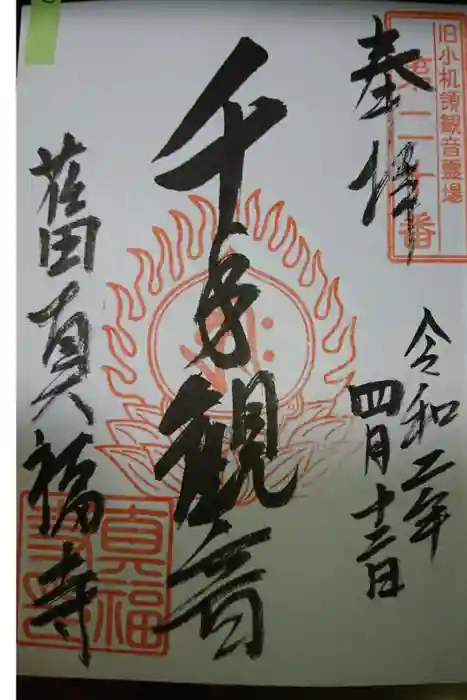 奉拝
旧小机領観音霊場
第二十番
令和二年
四月十二日
千手観音
荏田真福寺
真福
寺印